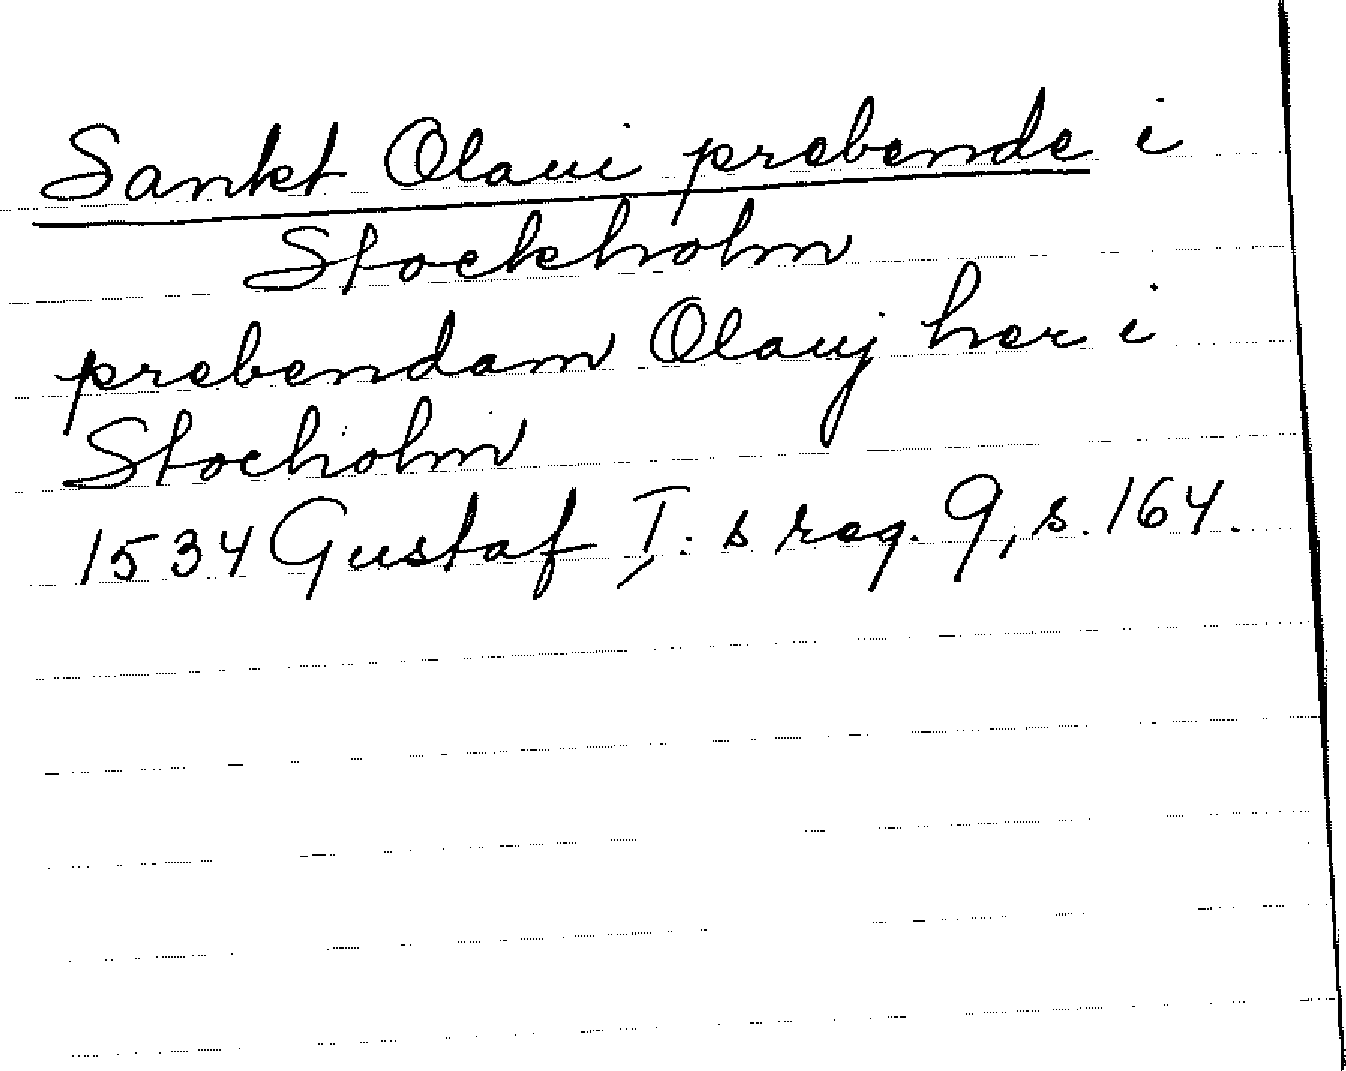 Sankt Olaui prebende i
Stockholm
prebendam Olauj her i
Stocholm
1534 Gustaf I:s reg. 9, s. 164.